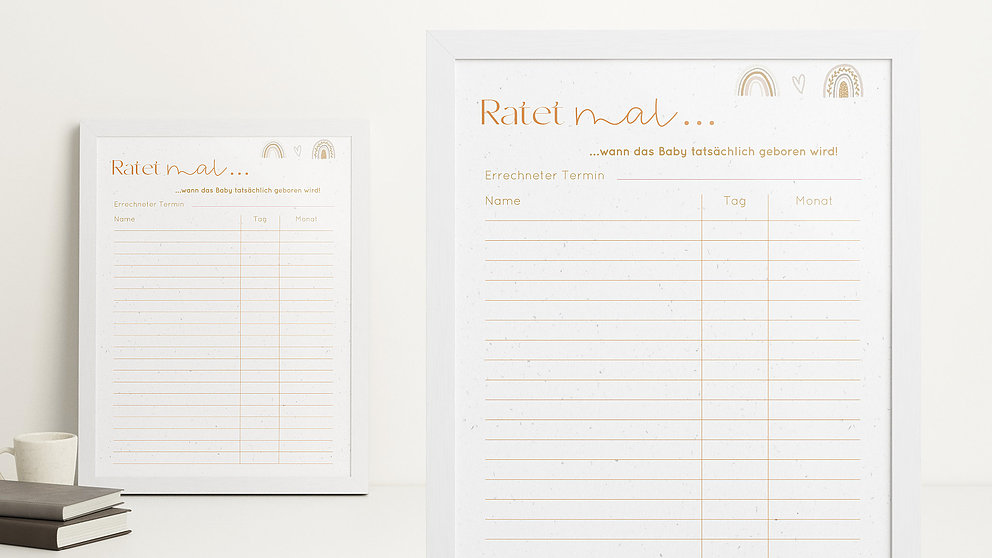 Ratet mal...
...wann das Baby tatsächlich geboren wird!
Errechneter Termin
Name Tag Monat
Ratet mal...
...wann das Baby tatsächlich geboren wird!
Errechneter Termin
Name Tag Monat